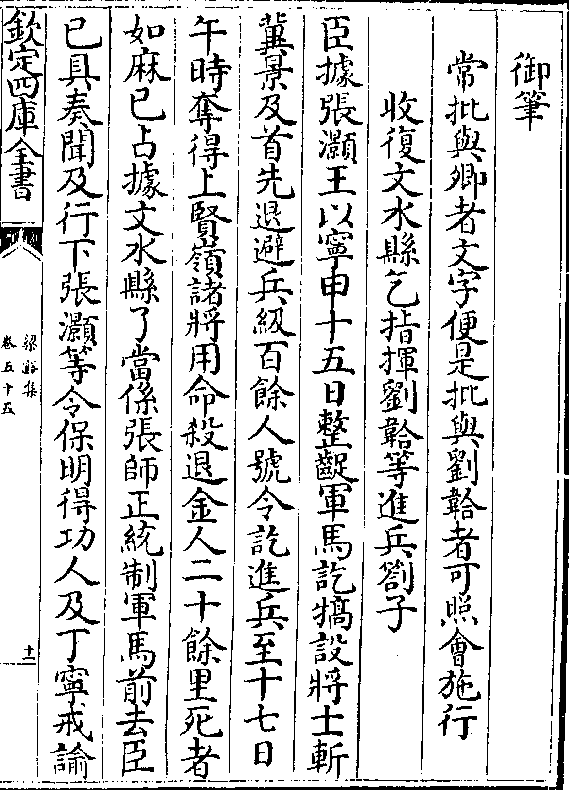 御筆
常批與卿者文字便是批與劉韐者可照會施行
收復文水縣乞指揮劉韐等進兵劄子
臣據張灝王以寧申十五日整齪軍馬訖犒設將士斬
冀景及首先退避兵級百餘人號令訖進兵至十七日
午時奪得上賢嶺諸將用命殺退金人二十餘里死者
如麻已占據文水縣了當係張師正統制軍馬前去臣
已具奏聞及行下張灝等令保明得功人及丁寧戒諭
欽定四庫全書
梁谿集
卷五十五
十一